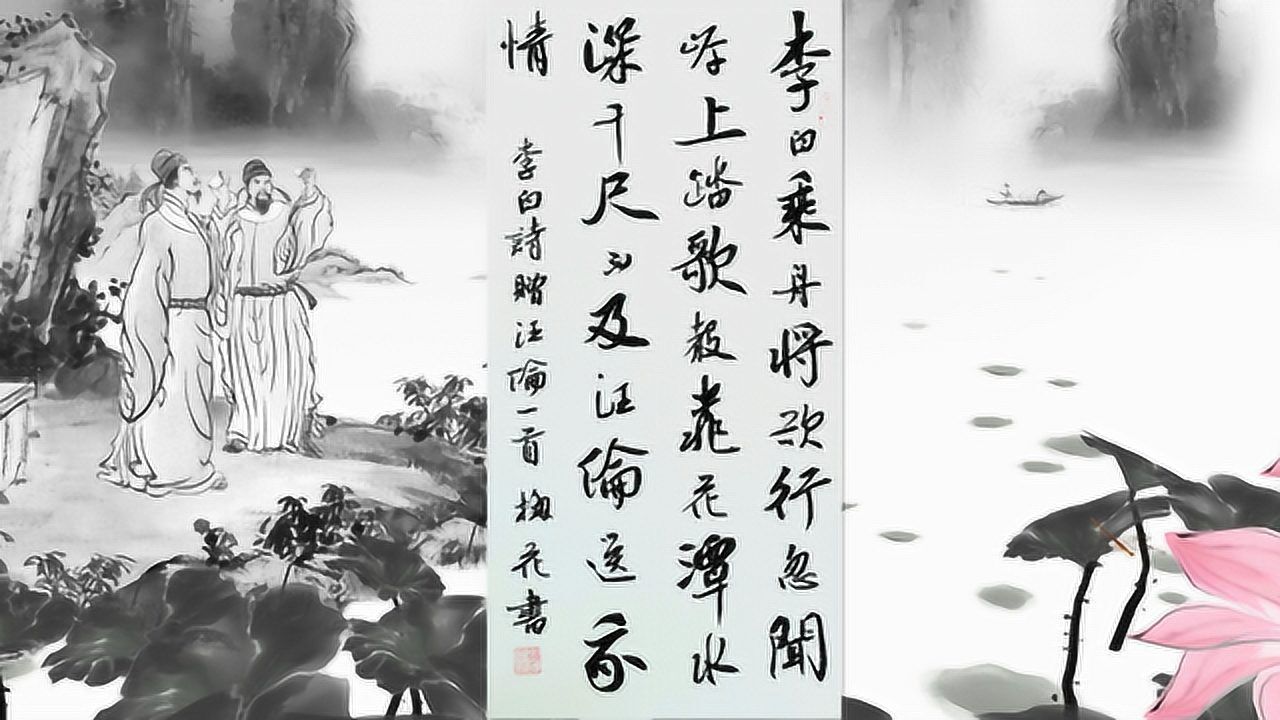 李白乘舟将欲行忽聞
岸上踏歌殸桃花潭水
深千尺不及汪倫送我
情
李白詩贈汪倫一首 花書